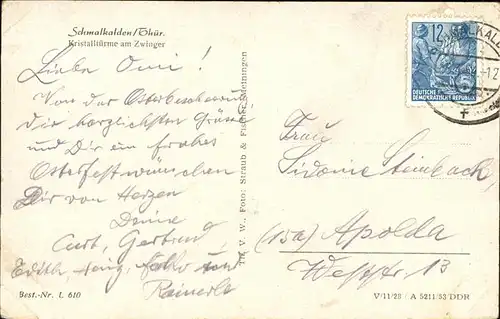 Schmalkalden/Thür.
Kristalltürme am Zwinger
Liebe Omi!
Von der Osterbescherung
Dir herzlichsten Grüße
und Dir ein frohes
Osterfest wünschen
Dir von Herzen
Deine
Curt, Gertrud,
Edith, und
Rainerle
Best.-Nr. L 610
TH V. W., Foto: Straub & Fischer, Meiningen
12
DEUTSCHE
DEMOKRATISCHE REPUBLIK
SCHMALKALDEN
Frau
Sidonie Steinbach
(15a) Apolda
Weststr. 13
V/11/28 / A 5211/53/DDR